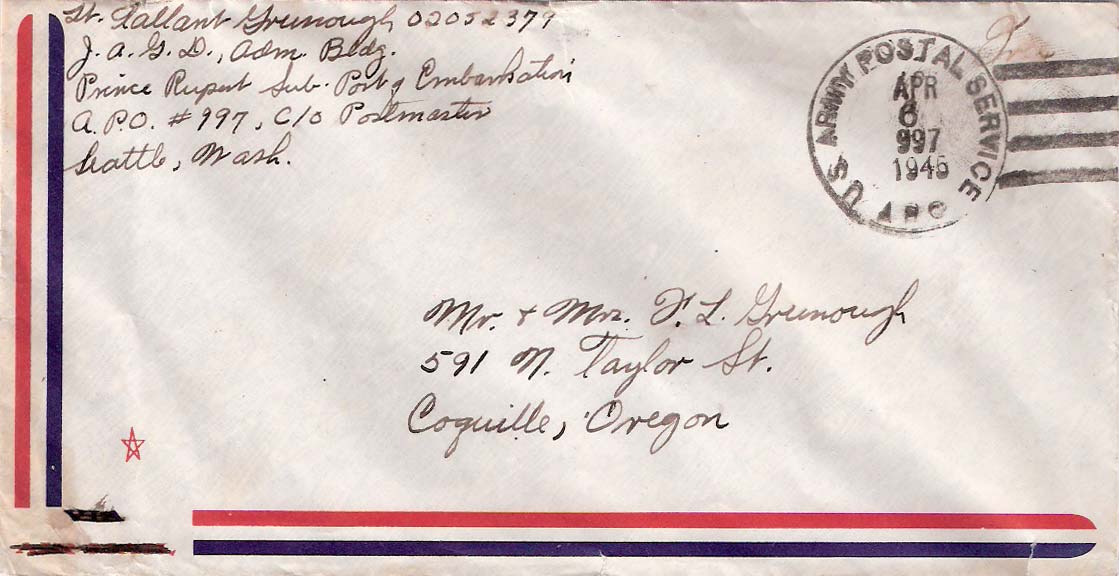 Lt. Tallant Greenough, 02052379
J.A.G.D., Adm. Bldg.
Prince Rupert Sub-Port of Embarkation
A.P.O. #997, C/o Postmaster
Seattle, Wash.
Free
U.S. ARMY POSTAL SERVICE
APR
6
997
1945
APO
Mr. & Mrs. F. L. Greenough
591 N. Taylor St.
Coquille, Oregon